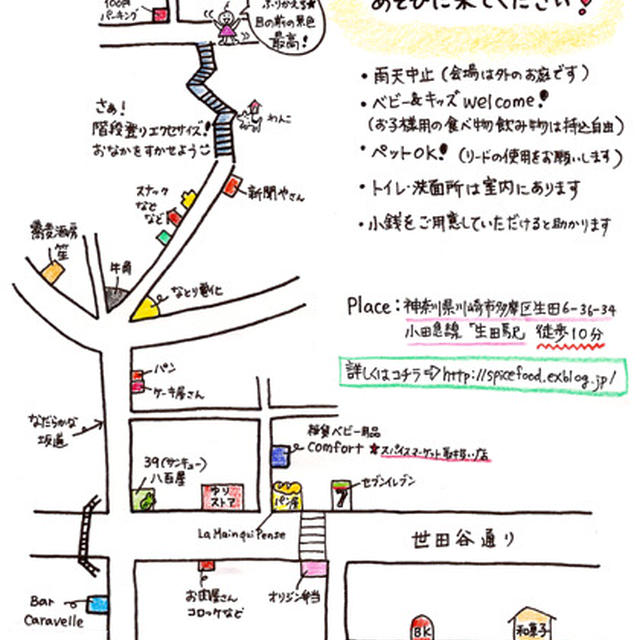 100円
パーキング
ふりかえる★
目の前の景色
最高!
あそびに来てください!
・雨天中止(会場は外のお庭です)
・ベビー&キッズ welcome!
(お子様用の食べ物飲み物は持込自由)
・ペットOK!(リードの使用をお願いします)
・トイレ・洗面所は室内にあります
・小銭をご用意していただけると助かります
さぁ!
階段登りエクササイズ!
おなかをすかせよう
わんこ
新聞やさん
スナック
など
など
蕎麦酒房
笙
牛角
なとり電化
Place:神奈川県川崎市多摩区生田6-36-34
小田急線「生田駅」徒歩10分
詳しくはコチラ⇨http://spicefood.exblog.jp/
パン
ケーキ屋さん
なだらかな
坂道
雑貨ベビー用品
comfort ★スパイスマーケット取り扱い店
39(サンキュー)
八百屋
ゆり
ストア
パン屋
7
セブンイレブン
La Main qui Pense
世田谷通り
お肉屋さん
コロッケなど
オリジン弁当
Bar
Caravelle
BK
和菓子